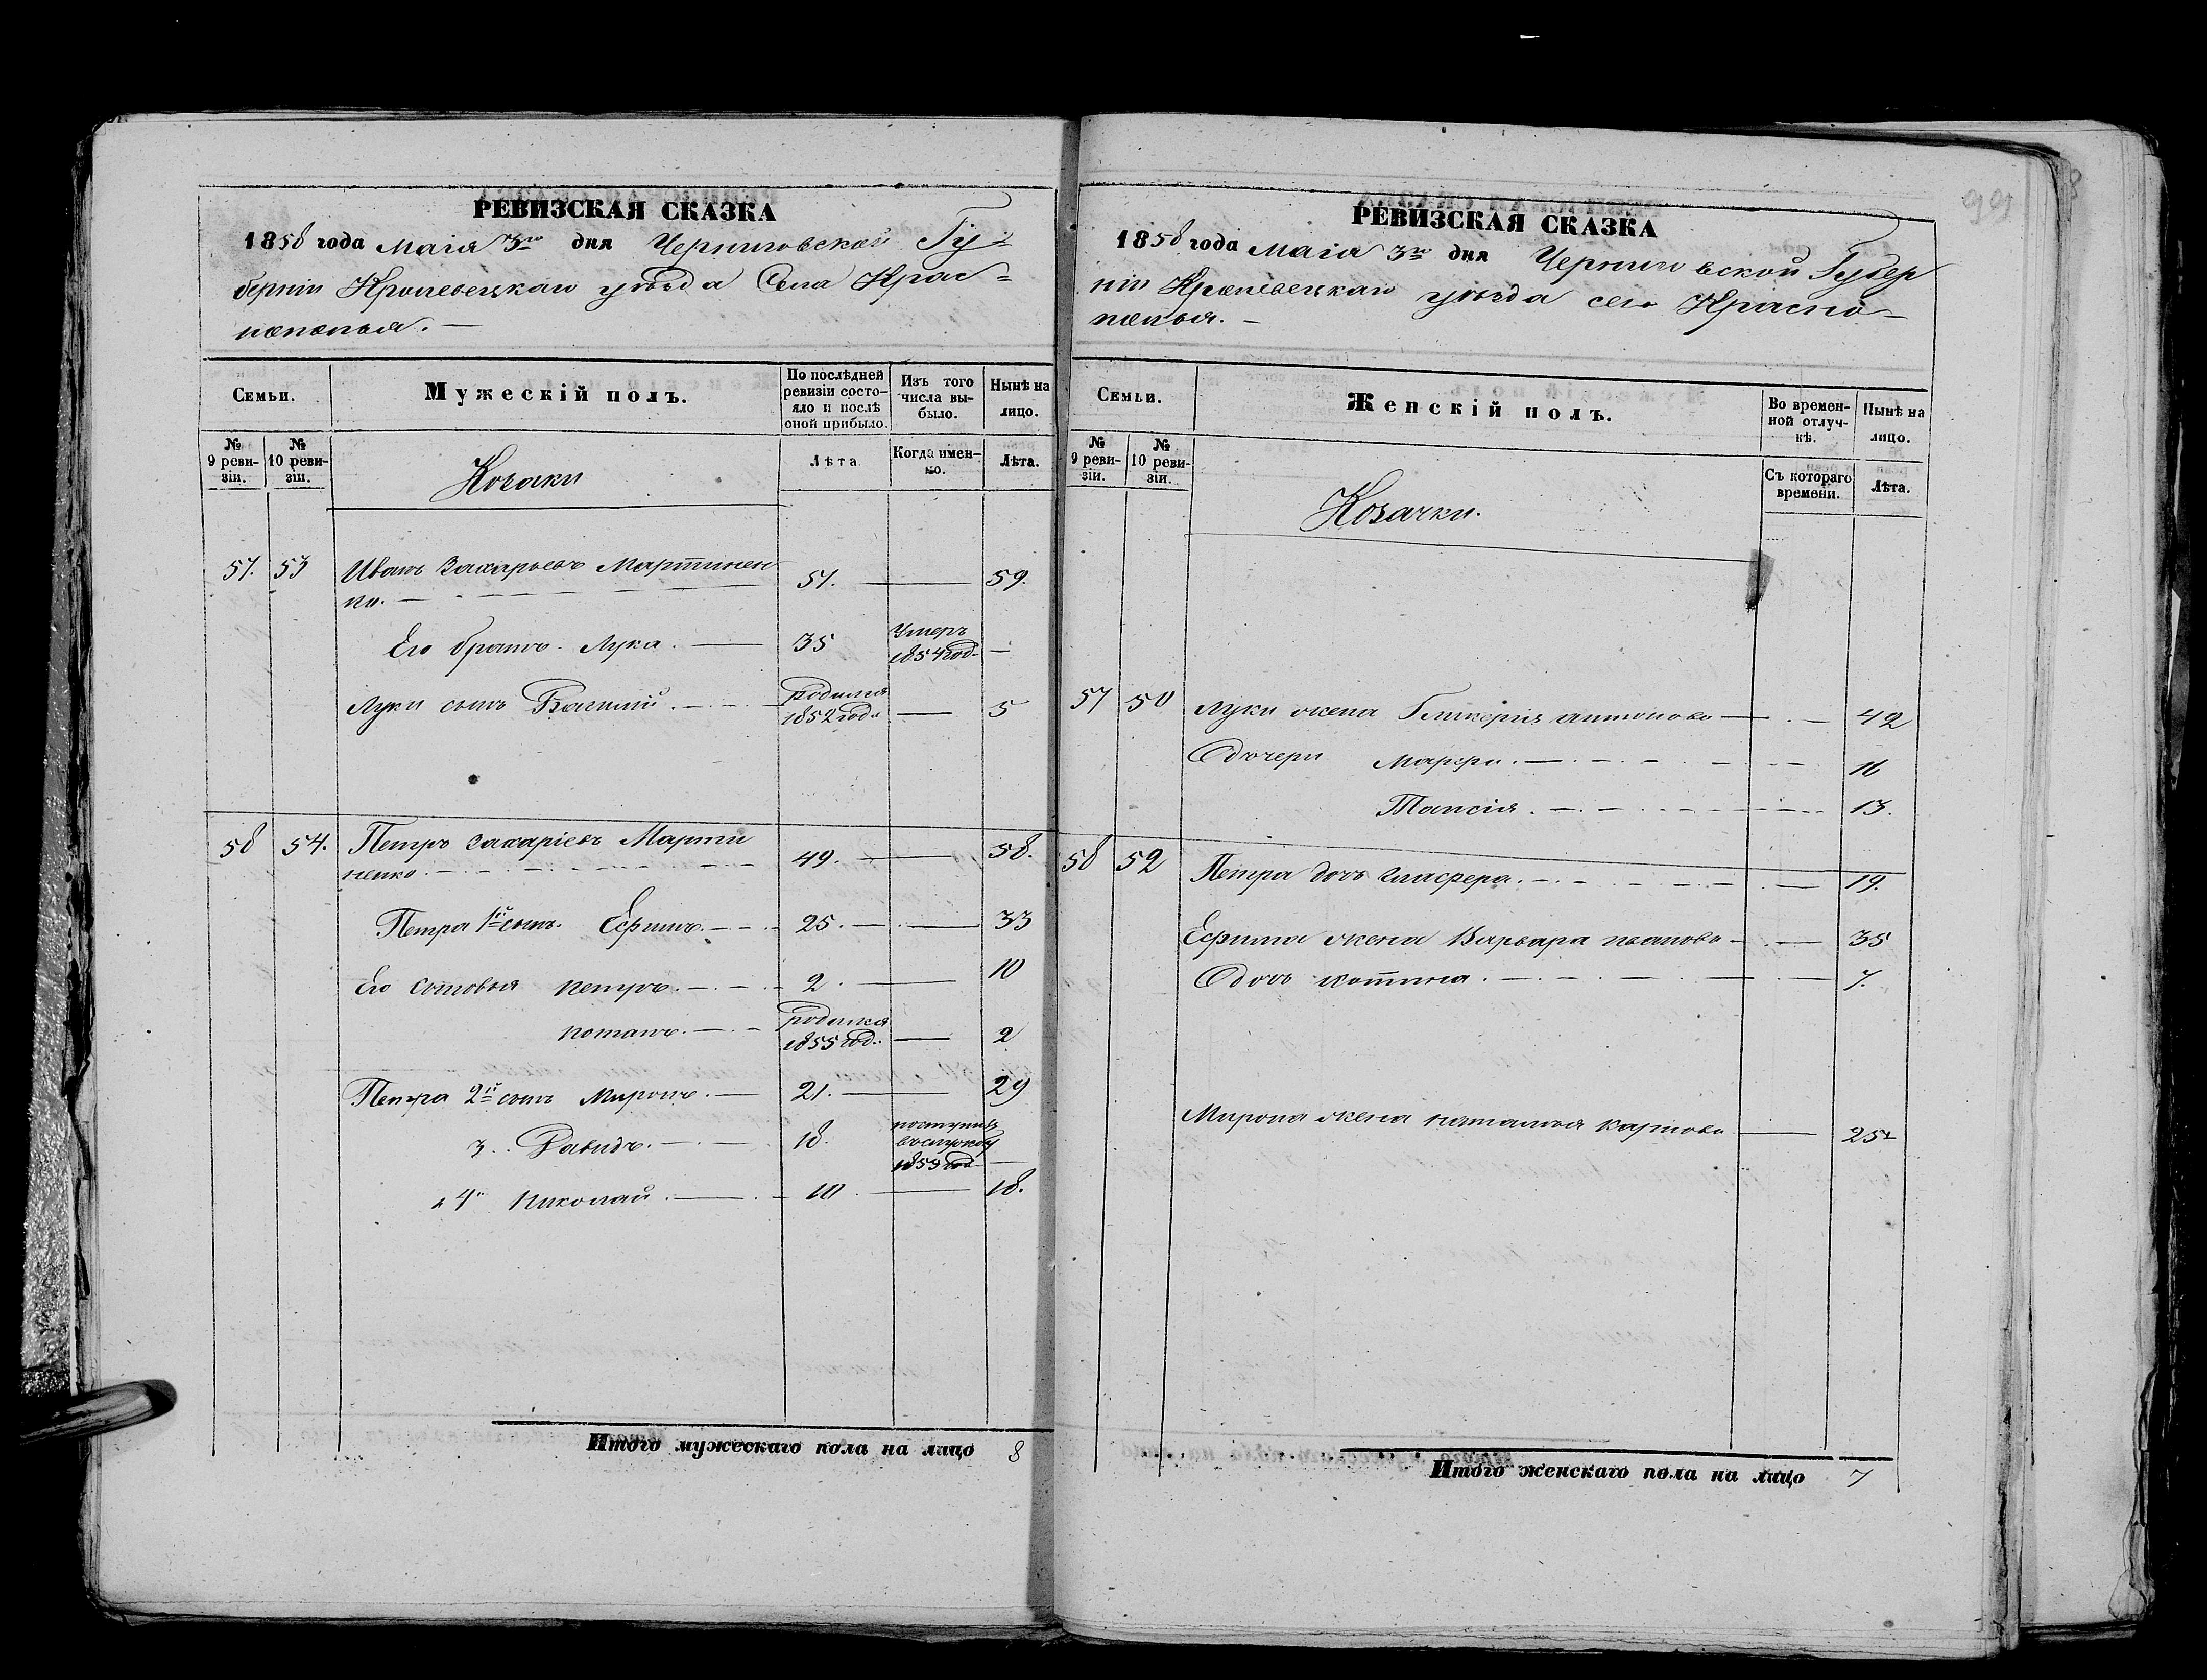 РЕВИЗСКАЯ СКАЗКА
1858 года Маія 3го дня Черниговской Гу=
берніи Кролевецкаго уѣзда Села Крас=
нополья.
Семьи.
Мужескій полъ.
По послѣдней ревизіи состояло и послѣ оной прибыло.
Изъ того числа выбыло.
Нынѣ на лицо.
№ 9 ревизіи.
№ 10 ревизіи.
Козаки
Лѣта
Когда именно.
Лѣта.
57. 53 Иванъ Захарьевъ Мартинен
ко. 51. 59.
Его братъ Лука. 35 Умеръ 1854 год.
Луки сынъ Василій. родился 1852 года 5
58 54. Петръ Захаріевъ Марти
ненко. 49. 58.
Петра 1й сынъ Ефимъ. 25. 33
Его сыновья Петръ. 2. 10
Потапъ. родился 1855 год. 2
Петра 2й сынъ Миронъ. 21. 29
3. Давидъ. 18. поступилъ въ службу год
4й Николай. 10. 18.
Итого мужескаго пола на лицо 8
РЕВИЗСКАЯ СКАЗКА
1858 года Маія 3го дня Черниговской Губер
ніи Кролевецкаго уѣзда села Красно
полья.
Семьи.
Женскій полъ.
Во временной отлучкѣ.
Нынѣ на лицо.
№ 9 ревизіи.
№ 10 ревизіи.
Козачки.
Съ котораго времени.
Лѣта.
57 Луки жена Гликерія Антонова 42
дочери Марфа. 16
Таисія. 13.
58 52 Петра дочь Глафера. 19.
Ефима жена Варвара Иванова 35
дочь 7.
Мирона жена Наталья Карпова 25
Итого женскаго пола на лицо 7